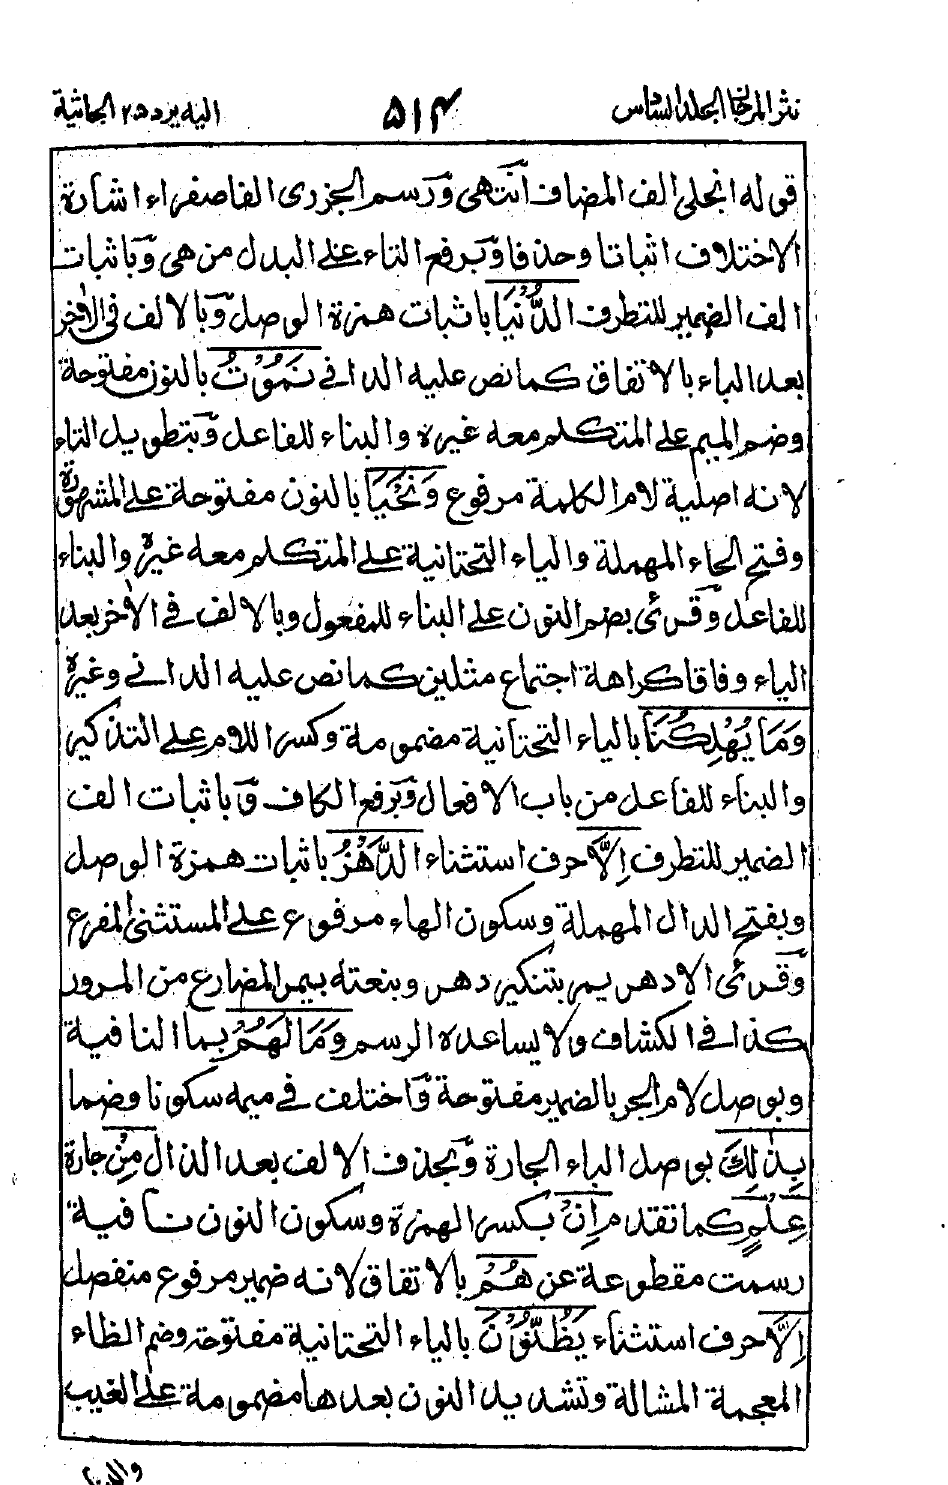 نثر المرجان الجلد السادس ٥١٤ اليه يرد ٢٥ الجاثية
قوله انجلى الف المضاف انتهى ورسم الجزرى الفا صفراء اشارة
الاختلاف اثباتا وحذفا وبرفع التاء على البدل من هى وباثبات
الف الضمير للتطرف الدُّنْيَا باثبات همزة الوصل وبالالف فى الاخر
بعد الياء بالاتفاق كما نص عليه الدانى نَمُوْتُ بالنون مفتوحة
وضم الميم على المتكلم معه غيره والبناء للفاعل وبتطويل التاء
لانه اصلية لام الكلمة مرفوع وَنَحْيَا بالنون مفتوحة على المشهورة
وفتح الحاء المهملة والياء التحتانية على المتكلم معه غيره والبناء
للفاعل وقرئ بضم النون على البناء للمفعول وبالالف فى الاخر بعد
الياء وفاقا كراهة اجتماع مثلين كما نص عليه الدانى وغيره
وَمَا يُهْلِكُنَا بالياء التحتانية مضمومة وكسر اللام على التذكير
والبناء للفاعل من باب الافعال وبرفع الكاف وباثبات الف
الضمير للتطرف اِلَّا حرف استثناء الدَّهْرُ باثبات همزة الوصل
وبفتح الدال المهملة وسكون الهاء مرفوع على المستثنى المفرع
وقرئ الا دهر يمر بتنكير دهر وبنعته بيمر المضارع من المرور
كذا فى الكشاف ولا يساعده الرسم وَمَا لَهُمْ بما النافية
وبوصل لام الجر بالضمير مفتوحة واختلف فى ميمه سكونا وضما
بِذٰلِكَ بوصل الباء الجارة وبحذف الالف بعد الذال مِنْ جارة
عِلْمٍ كما تقدم اِنْ بكسر الهمزة وسكون النون نافية
رسمت مقطوعة عن هُمْ بالاتفاق لانه ضمير مرفوع منفصل
اِلَّا حرف استثناء يَظُنُّوْنَ بالياء التحتانية مفتوحة وضم الظاء
المعجمة المشالة وتشديد النون بعدها مضمومة على الغيب